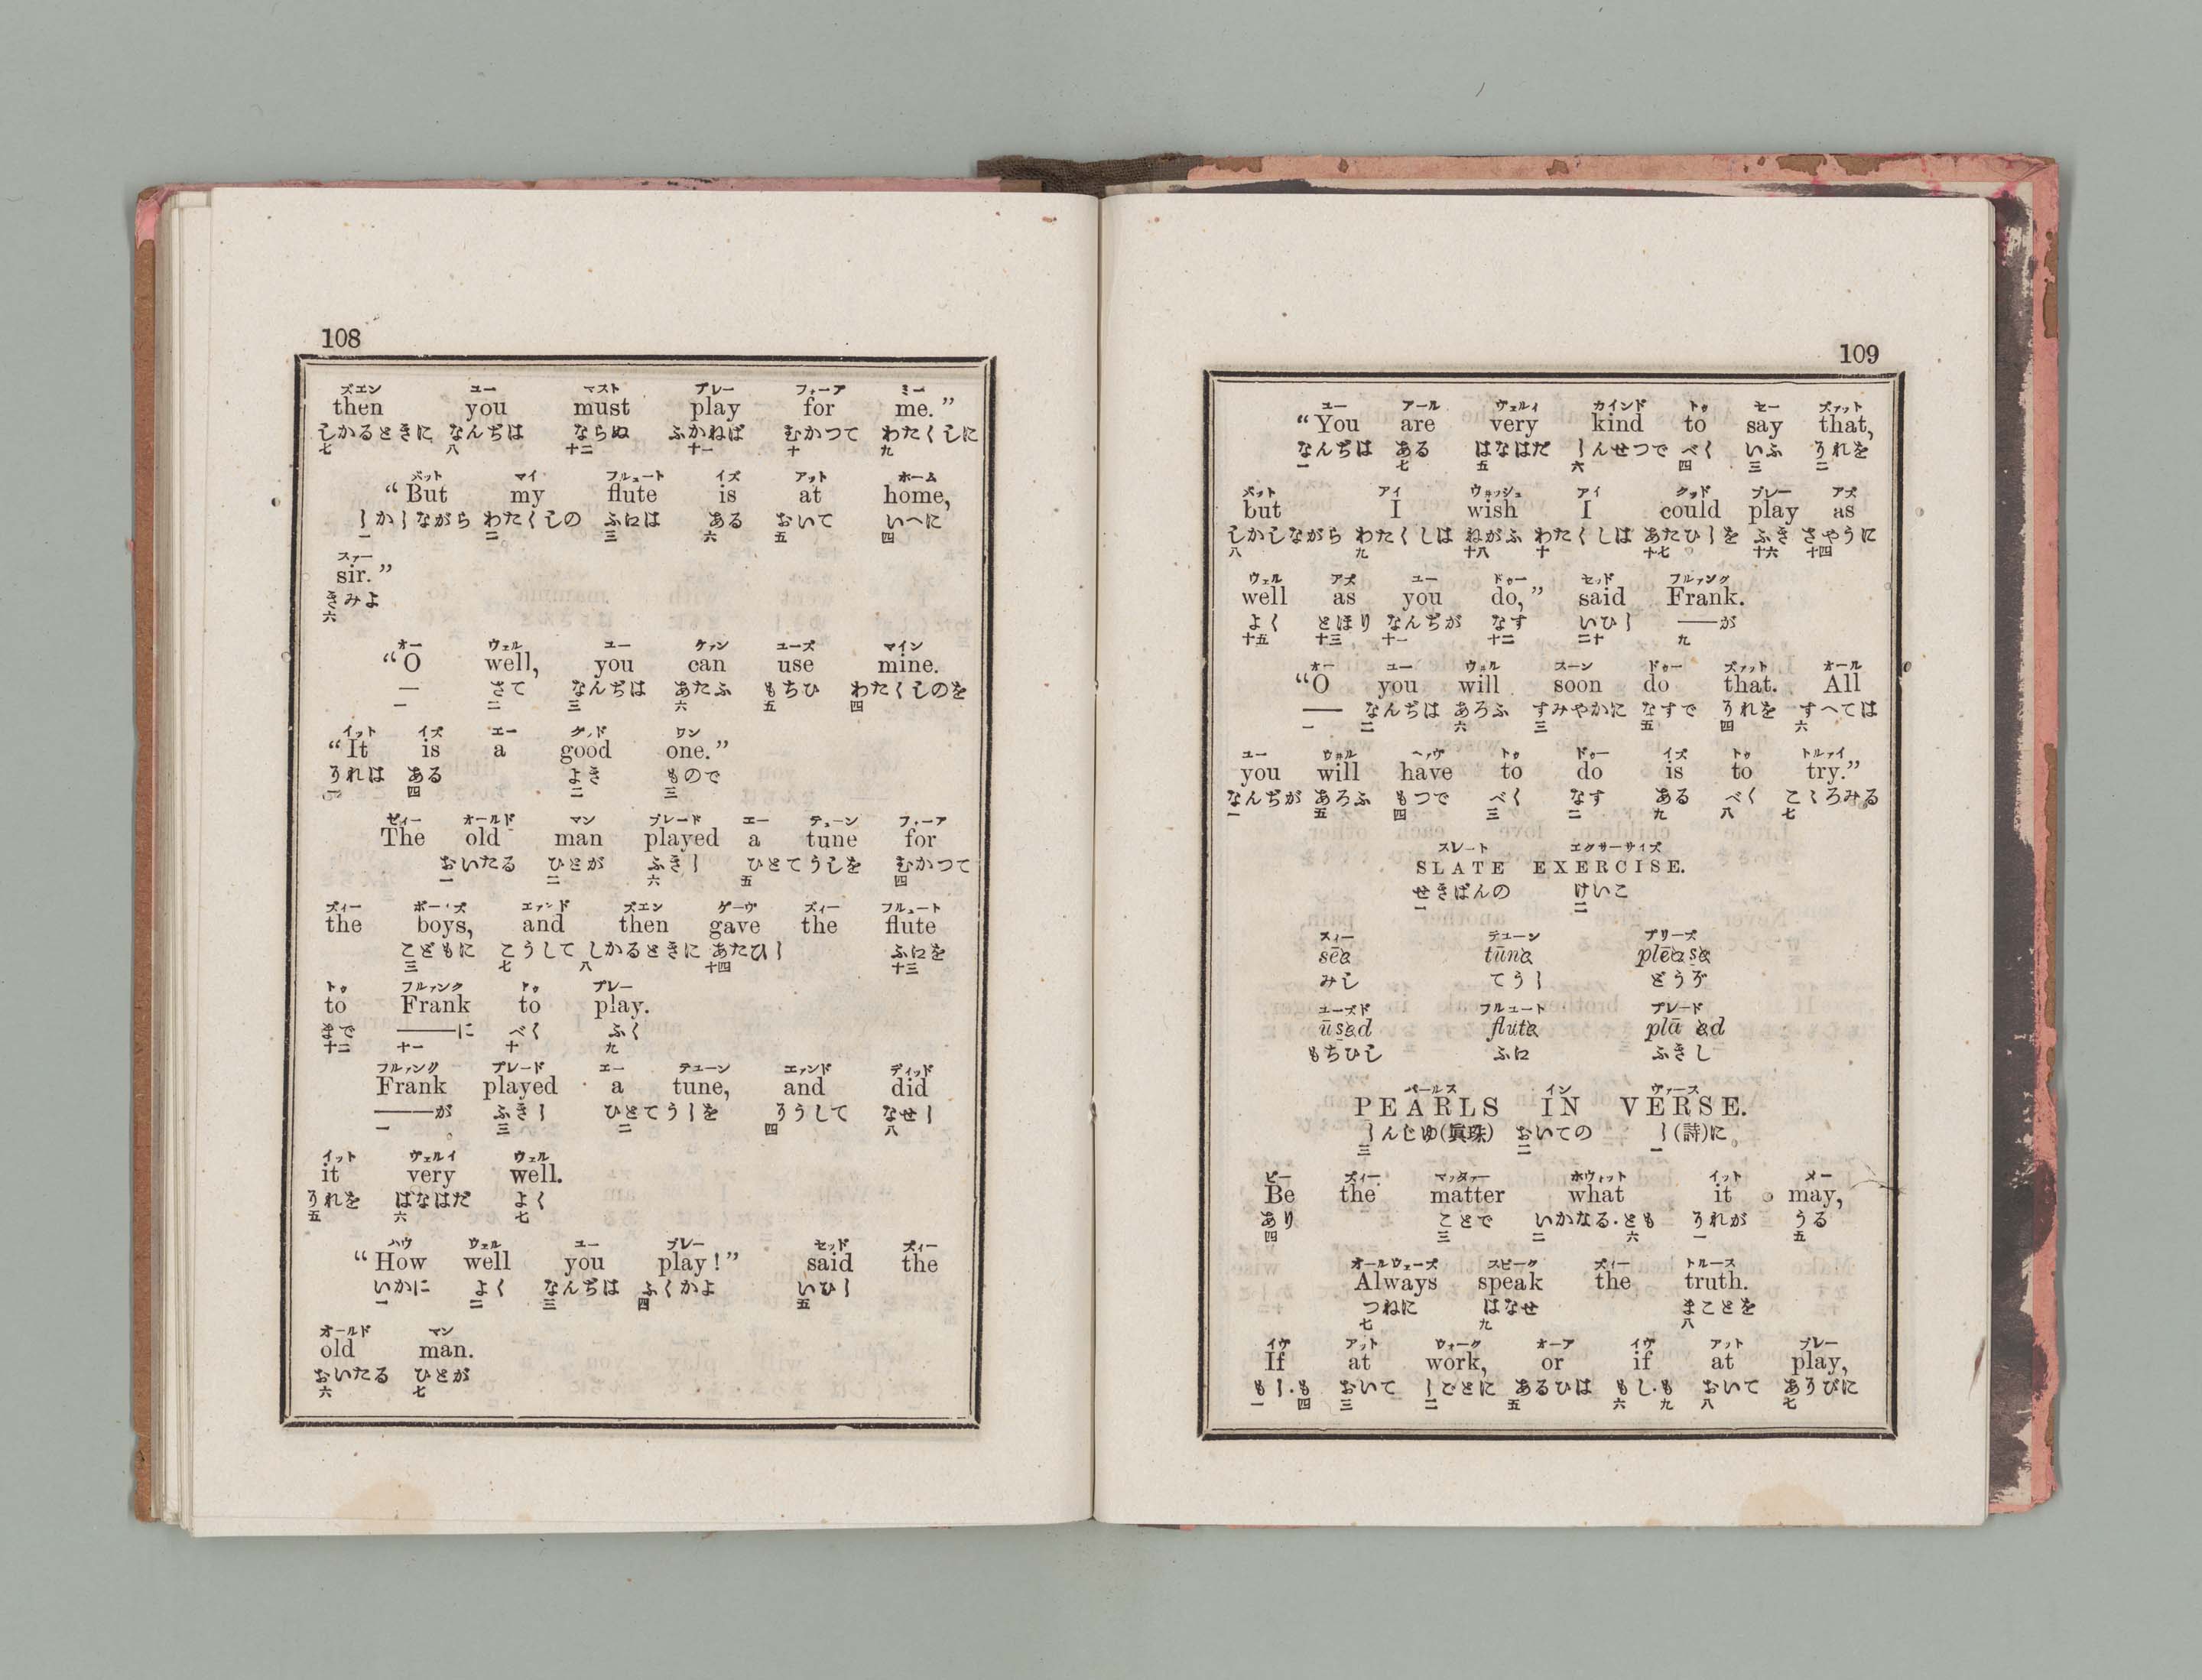 108
ズエン ユー マスト プレー フォーア ミー
then you must play for me.”
しかるときに なんぢは ならぬ ふかねば むかつて わたくしに
七 八 十二 十一 十 九
バット マイ フルュート イズ アット ホーム
“But my flute is at home,
しかしながら わたくしの ふえは ある おいて いへに
一 二 三 六 五 四
スァー
sir.”
きみよ
六
オー ウェル ユー ケァン ユーズ マイン
“O well, you can use mine.
— さて なんぢは あたふ もちひ わたくしのを
一 二 三 六 五 四
イット イズ エー グッド ワン
“It is a good one.”
それは ある よき もので
一 四 二 三
ゼィー オールド マン プレード エー テューン フォーア
The old man played a tune for
おいたる ひとが ふきし ひとてうしを むかつて
一 二 六 五 四
ズィー ボーイズ エァンド ズエン ゲーヴ ズィー フルュート
the boys, and then gave the flute
こどもに こうして しかるときに あたひし ふえを
三 七 八 十四 十三
トゥ フルァンク トゥ プレー
to Frank to play.
まで ——に べく ふく
十二 十一 十 九
フルァンク プレード エー テューン エァンド ディッド
Frank played a tune, and did
——が ふきし ひとてうしを そうして なせし
一 三 二 四 八
イット ヴェルイ ウェル
it very well.
それを はなはだ よく
五 六 七
ハウ ウェル ユー プレー セッド ズィー
“How well you play!” said the
いかに よく なんぢは ふくかよ いひし
一 二 三 四 五
オールド マン
old man.
おいたる ひとが
六 七
109
ユー アール ヴェルィ カインド トゥ セー ズァット
“You are very kind to say that,
なんぢは ある はなはだ しんせつで べく いふ それを
一 七 五 六 四 三 二
バット アイ ウォッシュ アイ クッド プレー アズ
but I wish I could play as
しかしながら わたくしは ねがふ わたくしは あたひしを ふき さやうに
八 九 十八 十 十七 十六 十四
ウェル アズ ユー ドゥー セッド フルァンク
well as you do,” said Frank.
よく とほり なんぢが なす いひし ——が
十五 十三 十一 十二 二十 九
オー ユー ウォル スーン ドゥー ズァット オール
“O you will soon do that. All
—— なんぢは あろふ すみやかに なすで それを すへては
一 二 六 三 五 四 六
ユー ウォル ヘァヴ トゥ ドゥー イズ トゥ トルァイ
you will have to do is to try.”
なんぢが あろふ もつで べく なす ある べく こころみる
一 五 四 三 二 九 八 七
スレート エクサーサイズ
SLATE EXERCISE.
せきばんの けいこ
一 二
スィー テューン プリーズ
sēa tūne plēase
みし てうし どうぞ
ユーズド フルュート プレード
ūsed flute plā ed
もちひし ふえ ふきし
パールス イン ヴァース
PEARLS IN VERSE.
しんじゆ(眞珠) おいての し(詩)に
三 二 一
ビー ズィー マッター ホウァット イット メー
Be the matter what it may,
あり ことで いかなる・とも それが うる
四 三 二 六 一 五
オールウェーズ スピーク ズィー トルース
Always speak the truth.
つねに はなせ まことを
七 九 八
イヴ アット ウォーク オーア イヴ アット プレー
If at work, or if at play,
もし・も おいて しごとに あるひは もし・も おいて あそびに
一 四 三 二 五 六 九 八 七